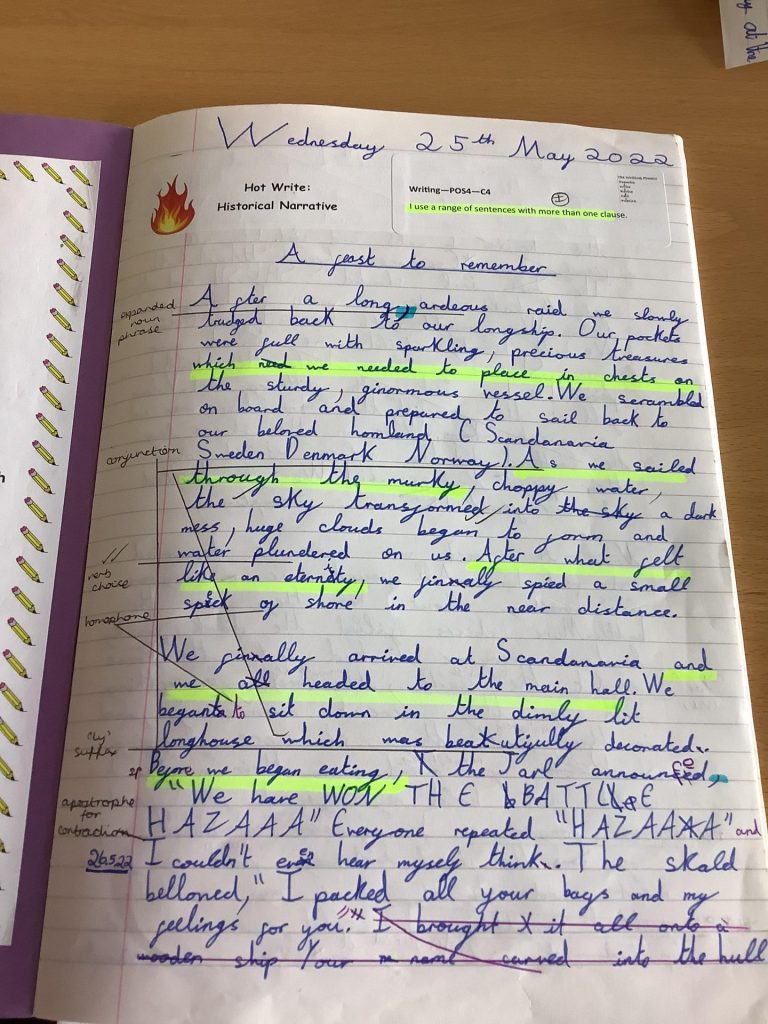 Wednesday 25th May 2022
Hot Write:
Historical Narrative
Writing—POS4—C4
I use a range of sentences with more than one clause.
A feast to remember
expanded
noun
phrase
After a long, ardeous raid we slowly
trudged back to our longship. Our pockets
were full with sparkling, precious treasures
which need we needed to place in chests on
the sturdy, ginormous vessel. We scrambled
on board and prepared to sail back to
our beloved homland (Scandanavia
conjunction
Sweden Denmark Norway). As we sailed
through the murky, choppy water,
the sky transformed into the sky a dark
mess, huge clouds began to form and
water plundered on us. After what felt
verb
choice
like an eternity, we finnaly spied a small
speck of shore in the near distance.
homophone
We finnally arrived at Scandanavia and
we all headed to the main hall. We
began to sit down in the dimly lit
'ly'
suffix
longhouse which was beautifully decorated.
sp
Before we began eating, the Jarl announced,
"We have WON THE BATTLE
apostrophe
for
contraction
HAZAAA" Everyone repeated "HAZAAA" and
26.5.22
I couldn't even hear myself think. The skald
belloned, "I packed all your bags and my
feelings for you." I brought it all onto a
wooden ship Your name carved into the hull
at the